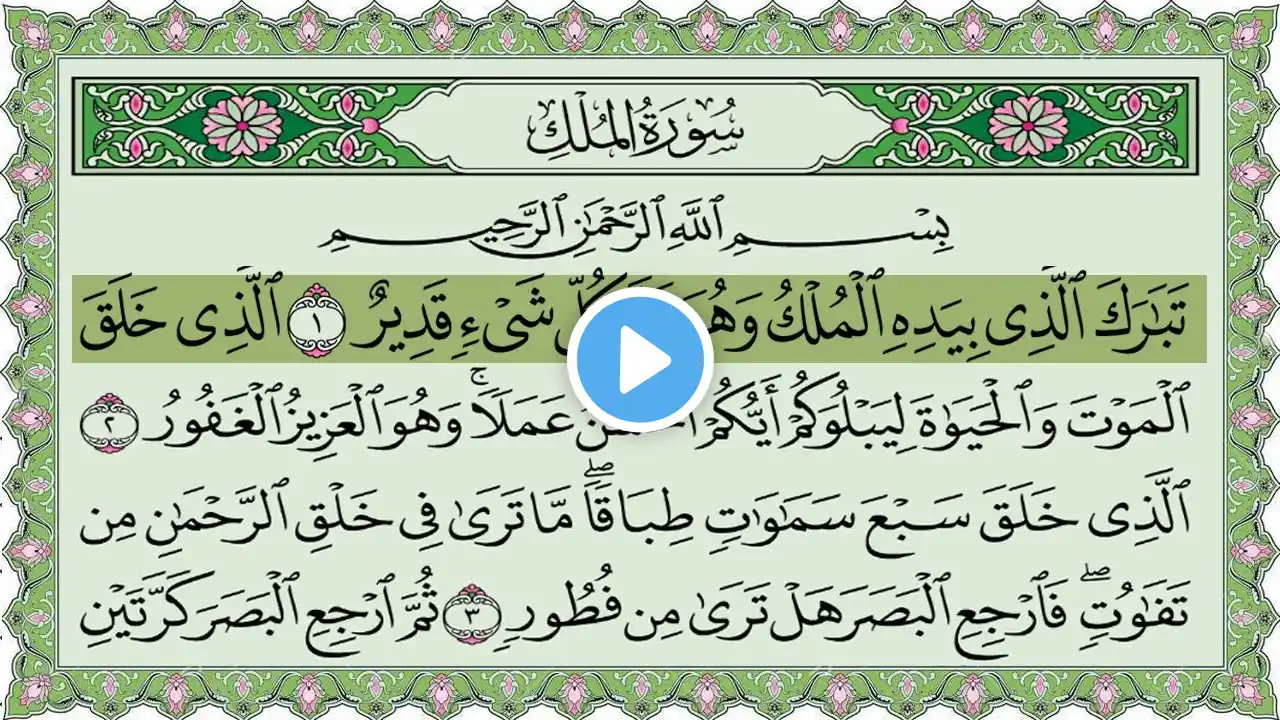 سُورَةُ المُلْكِ
بِسْمِ ٱللَّهِ ٱلرَّحْمَٰنِ ٱلرَّحِيمِ
تَبَٰرَكَ ٱلَّذِى بِيَدِهِ ٱلْمُلْكُ وَهُوَ كُلِّ شَىْءٍ قَدِيرٌ ١ ٱلَّذِى خَلَقَ
ٱلْمَوْتَ وَٱلْحَيَوٰةَ لِيَبْلُوَكُمْ أَيُّكُمْ عَمَلًا ۚ وَهُوَ ٱلْعَزِيزُ ٱلْغَفُورُ ٢
ٱلَّذِى خَلَقَ سَبْعَ سَمَٰوَٰتٍ طِبَاقًا ۖ مَّا تَرَىٰ فِى خَلْقِ ٱلرَّحْمَٰنِ مِن
تَفَٰوُتٍ ۖ فَٱرْجِعِ ٱلْبَصَرَ هَلْ تَرَىٰ مِن فُطُورٍ ٣ ثُمَّ ٱرْجِعِ ٱلْبَصَرَ كَرَّتَيْنِ